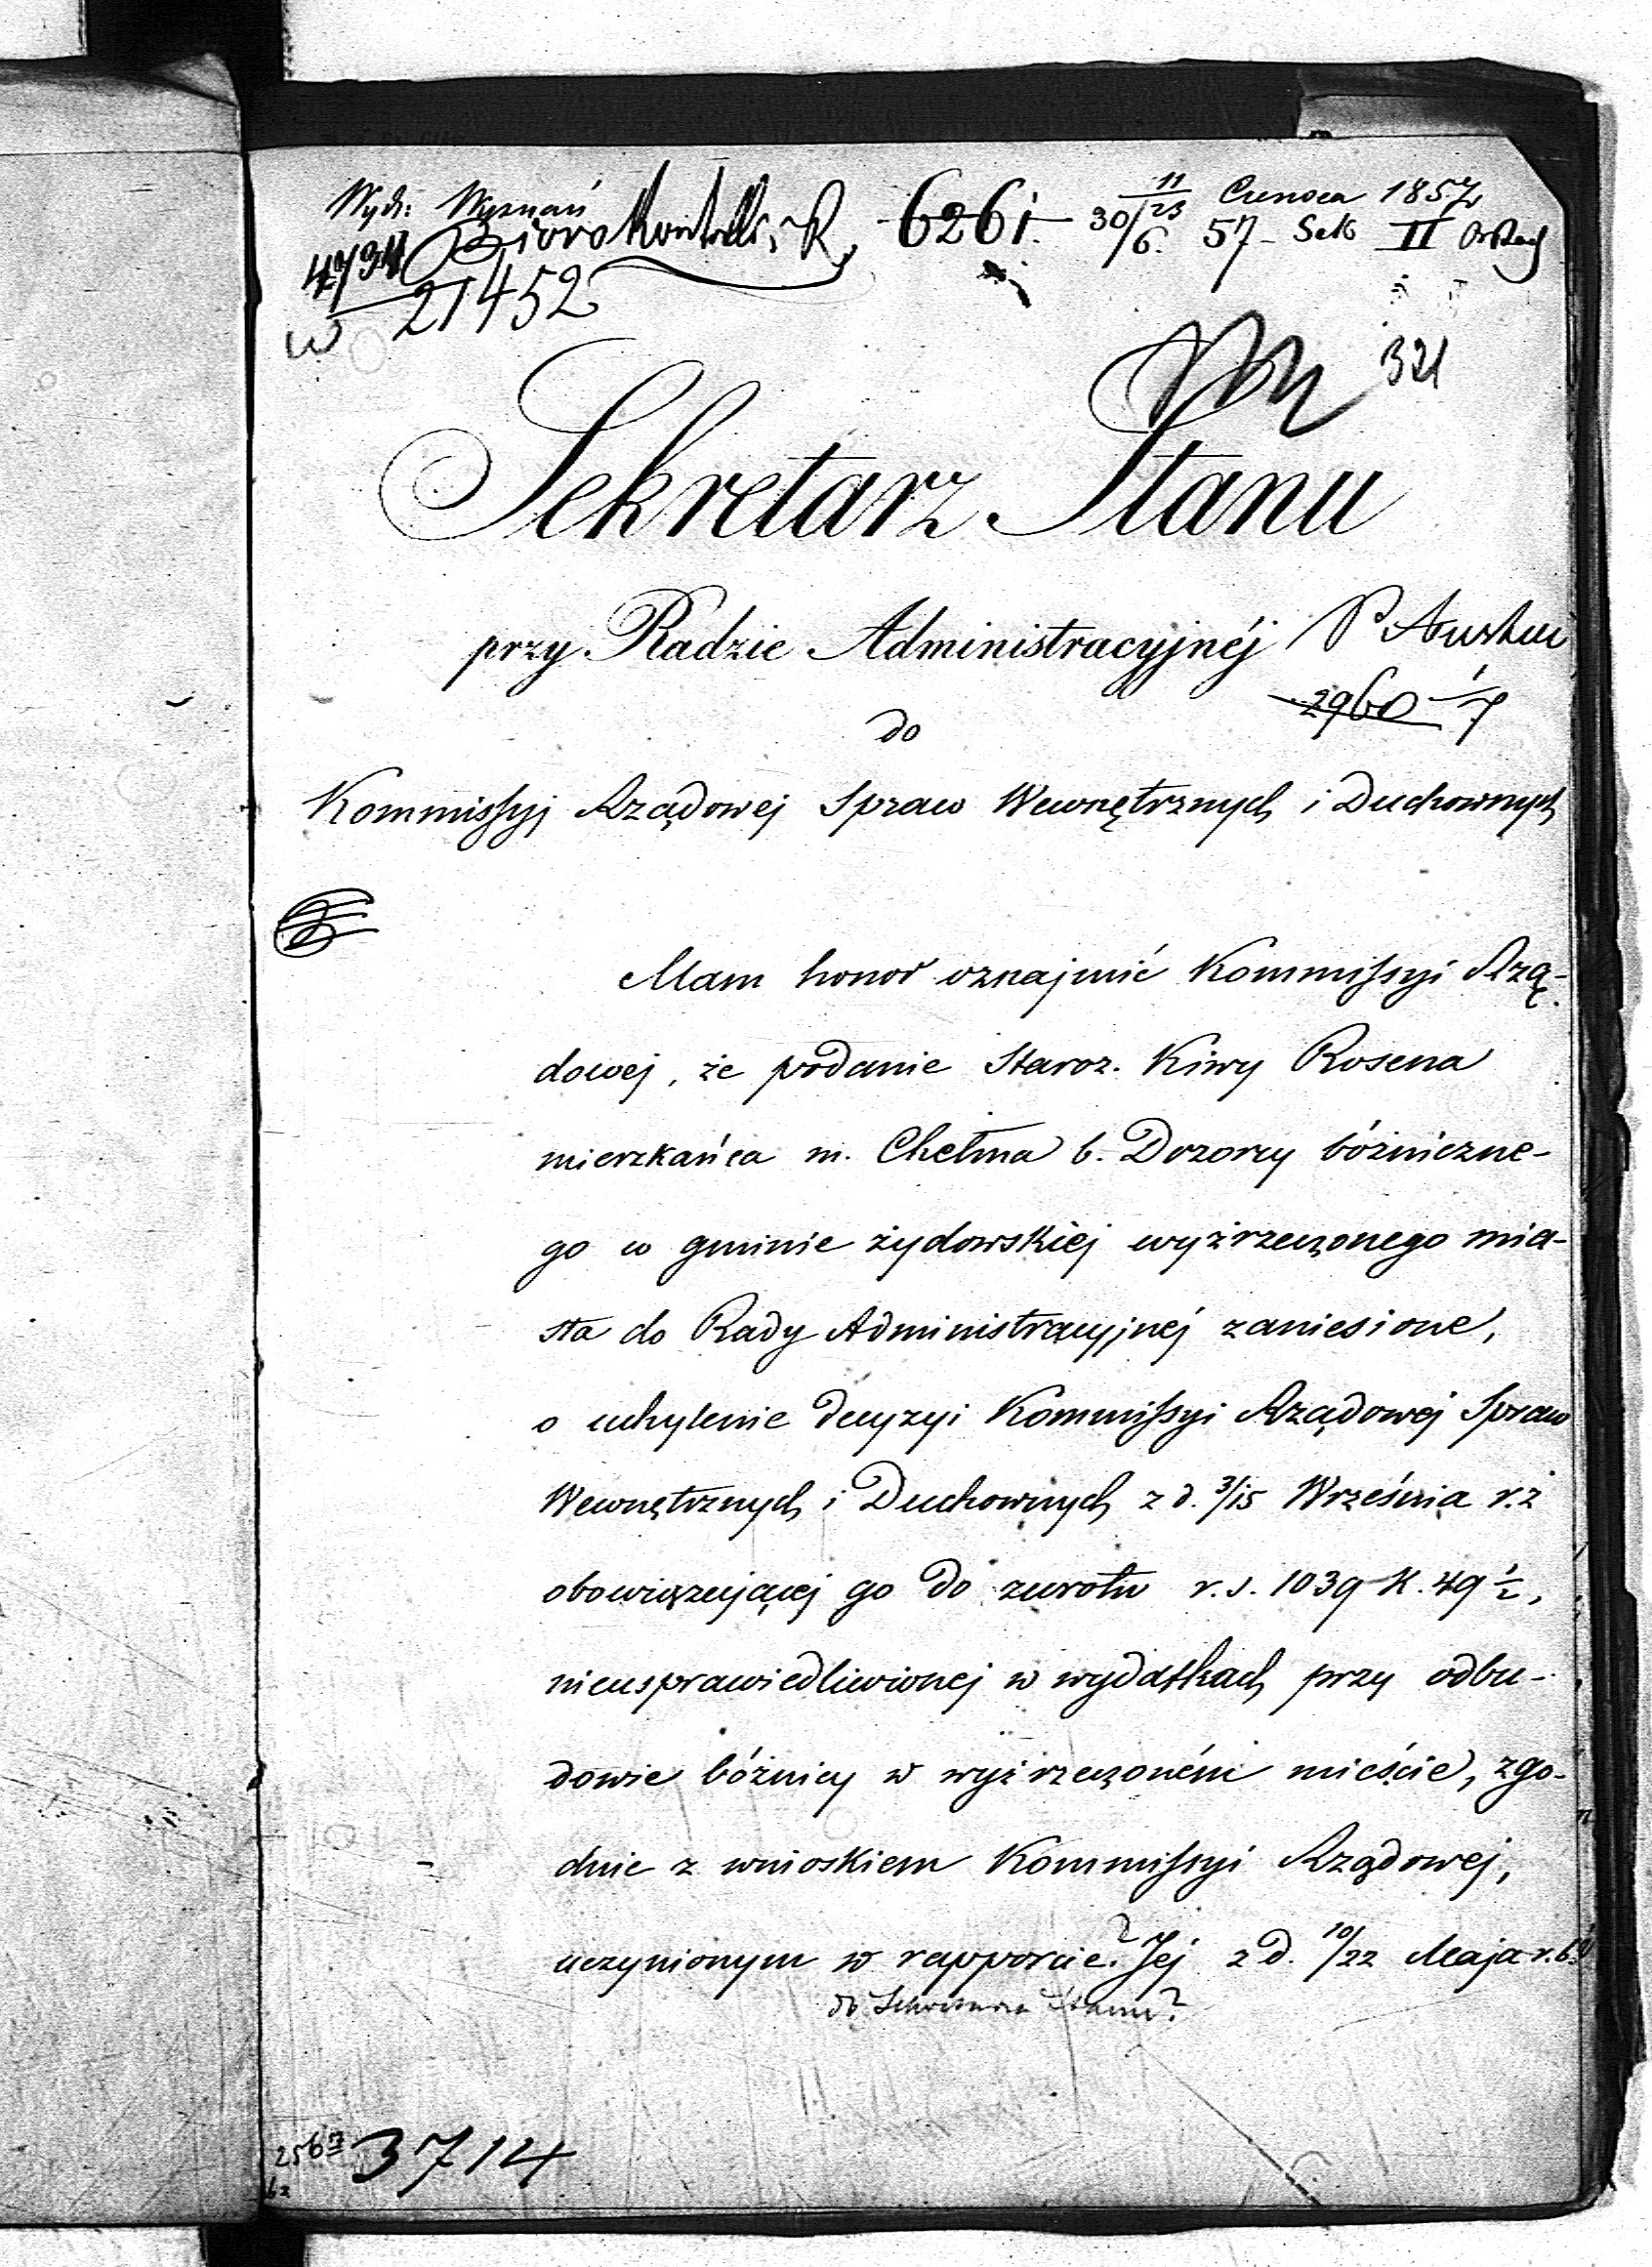 Wydz: Wyznań
Bióro Kontrolli 6261. 11/23 Czerwca 1857
30/6. 57 - Sek II
4734 21452
w
321
Sekretarz Stanu
przy Radzie Administracyjnéj
2960 1/7
do
Kommissyi Rządowej Spraw Wewnętrznych i Duchownych
Mam honor oznajmić Kommissyi Rzą-
dowej, że podanie Staroz. Kiwy Rosena
mieszkańca m. Chełma b. Dozorcy bóżniczne-
go w gminie żydowskiéj wyżrzeczonego mia-
sta do Rady Administracyjnéj zaniesione,
o uchylenie decyzyi Kommissyi Rządowéj Spraw
Wewnętrznych i Duchownych z d. 3/15 Września r. z
obowięzującéj go do zwrotu r. s. 1039 k. 49 1/2,
nieusprawiedliwionej w wydatkach przy odbu-
dowie bóżnicy w wyżrzeczoném mieście, zgo-
dnie z wnioskiem Kommissyi Rządowéj,
uczynionym w rapporcie Jej z d. 10/22 Maja r. b.
do Sekretarza Stanu?
3714